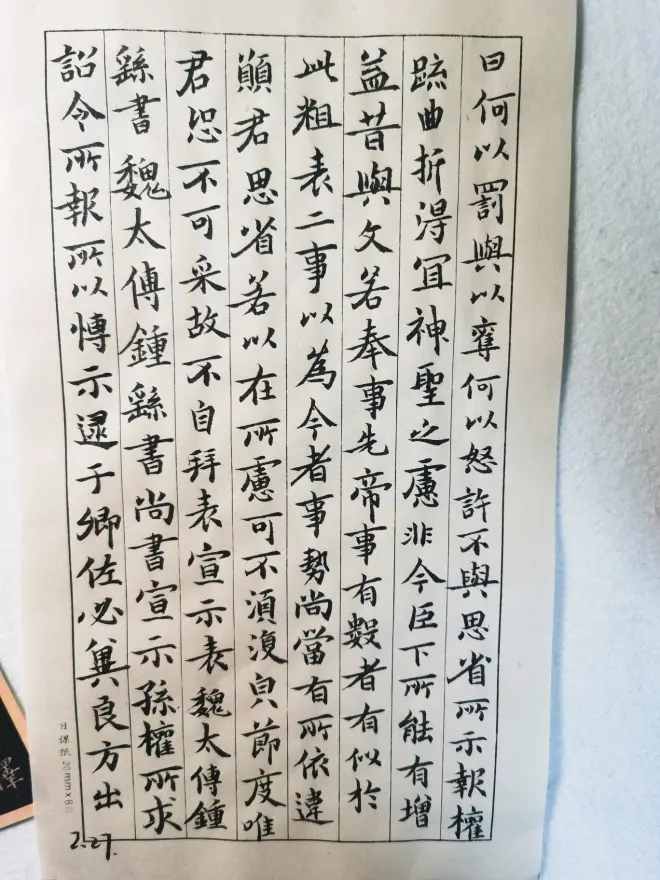 曰何以罰與以奪何以怒許不與思省所示報權
疏曲折得宜神聖之慮非今臣下所能有增
益昔與文若奉事先帝事有數者有似於
此粗表二事以為今者事勢尚當有所依違
願君思省若以在所慮可不須復皃節度唯
君恐不可采故不自拜表宣示表魏太傅鍾
繇書魏太傅鍾繇書尚書宣示孫權所求
詔令所報所以博示逮于卿佐必冀良方出
日課紙 20mm×8
2.27.